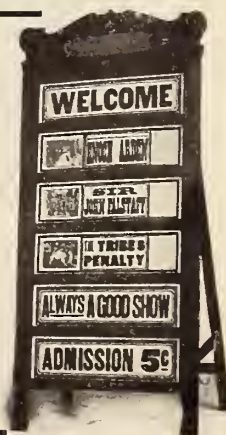 WELCOME
ENOCH ARDEN
SIR
JOHN FALSTAFF
A TRIBES
PENALTY
ALWAYS A GOOD SHOW
ADMISSION 5¢